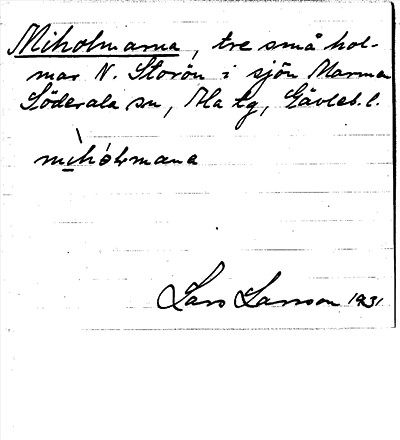 Miholmarna, tre små hol-
mar N. Storön i sjön Marma
Söderala sn, Ala tg, Gävleb. l.
mihólmana
Lars Larsson 1931